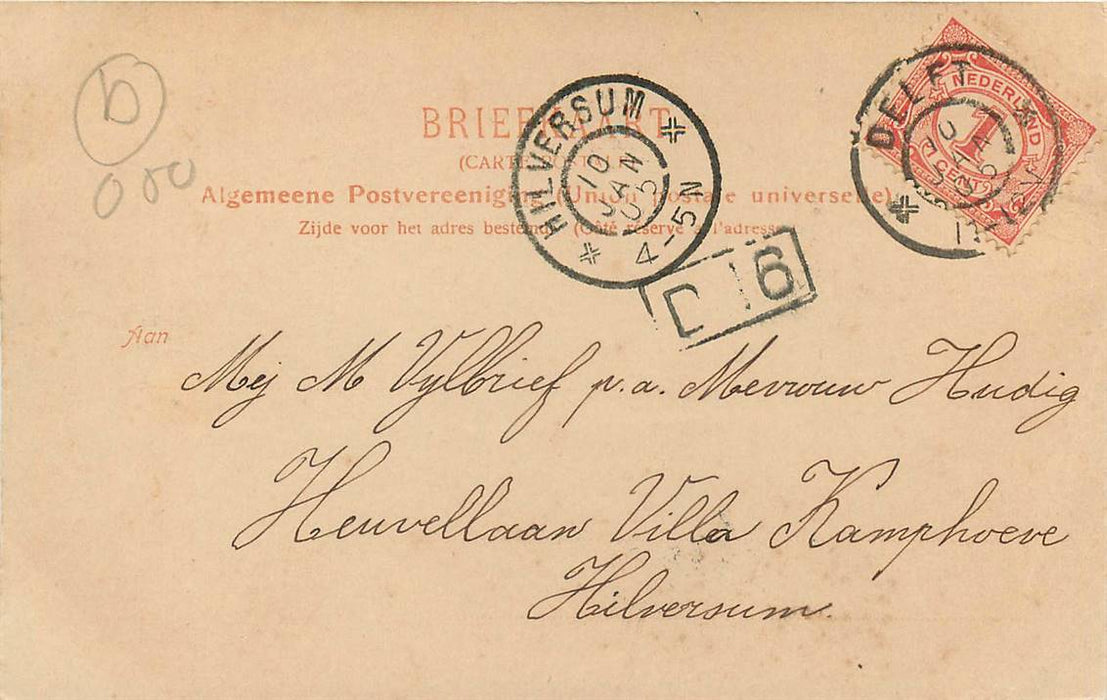 b
000
BRIEFKAART
(CARTE POSTALE)
Algemeene Postvereeniging (Union postale universelle)
Zijde voor het adres bestemd. (Côté réservé à l'adresse.)
HILVERSUM
10
JAN
03
4-5N
DELFT
JAN
NEDERLAND
1
CENT
D 16
Aan
Mej M Vylbrief p.a. Mevrouw Hudig
Heuvellaan Villa Kamphoeve
Hilversum.